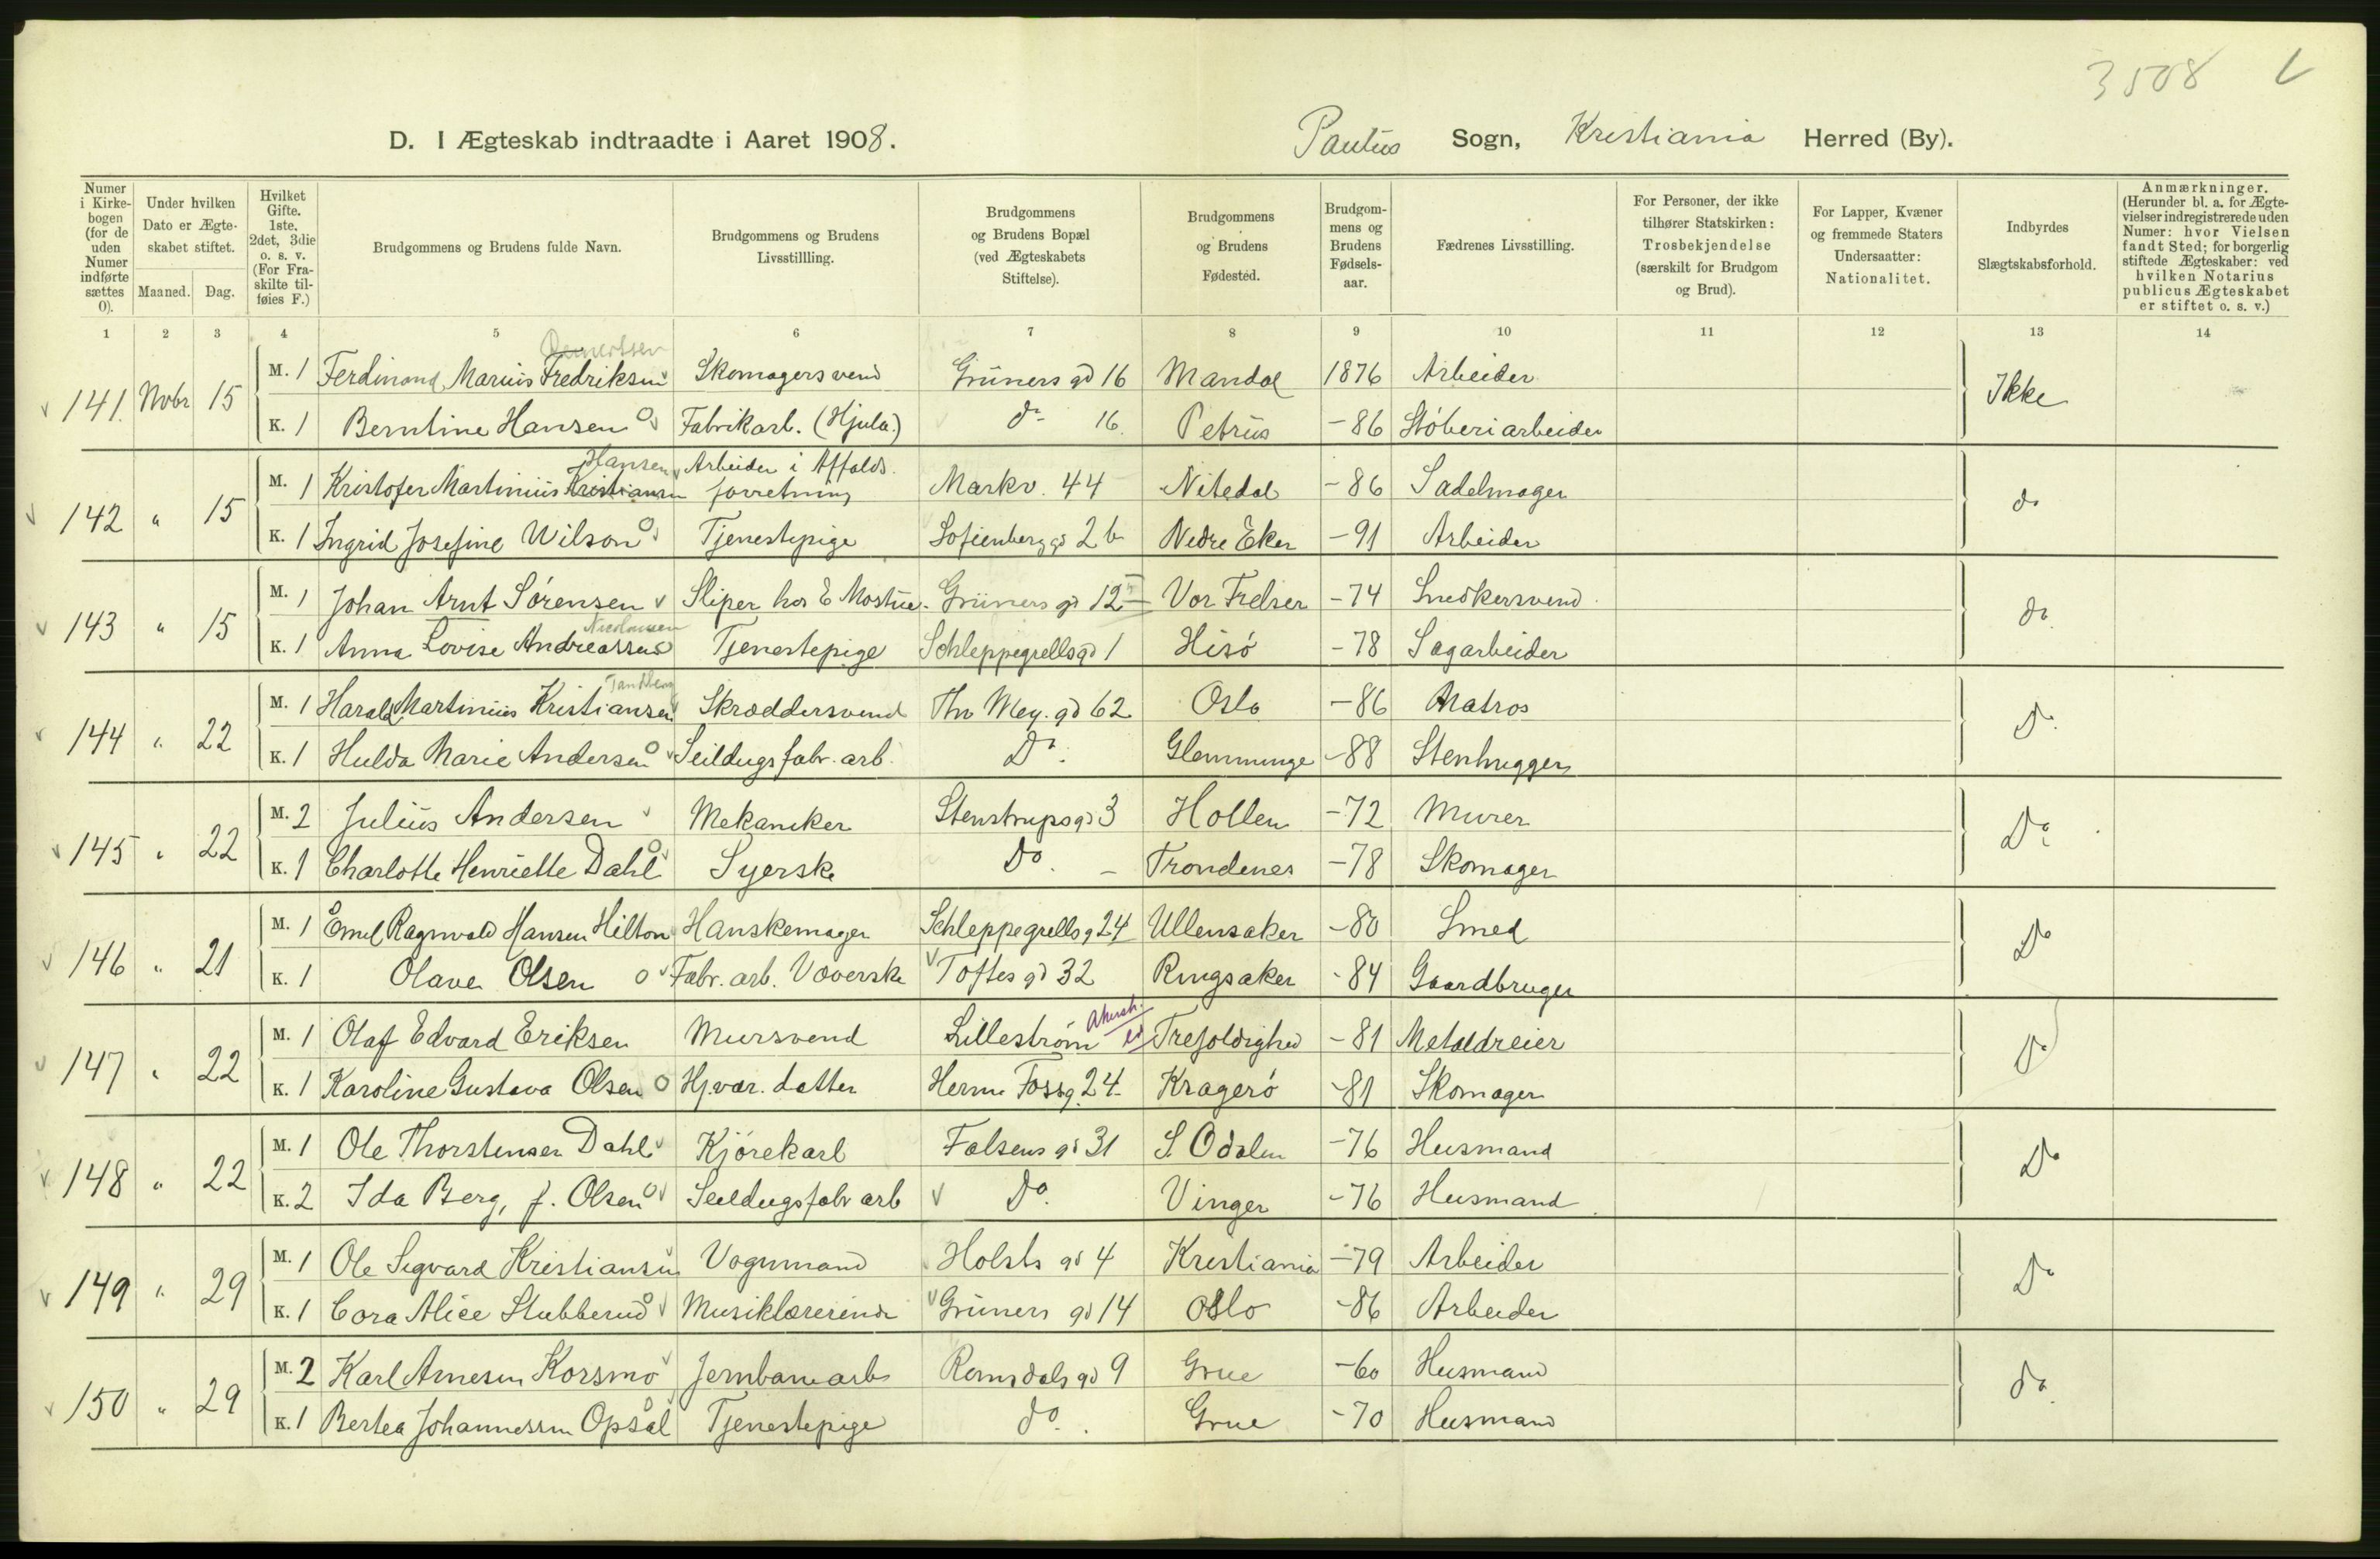 3508
D. I Ægteskab indtraadte i Aaret 1908. Paulus Sogn, Kristiania Herred (By).
Numer i Kirkebogen (for de uden Numer indførte sættes 0).
Under hvilken Dato er Ægteskabet stiftet.
Maaned. Dag.
Hvilket Gifte. 1ste, 2det, 3die o. s. v. (For Fraskilte tilføies F.)
Brudgommens og Brudens fulde Navn.
Brudgommens og Brudens Livsstillling.
Brudgommens og Brudens Bopæl (ved Ægteskabets Stiftelse).
Brudgommens og Brudens Fødested.
Brudgommens og Brudens Fødselsaar.
Fædrenes Livsstilling.
For Personer, der ikke tilhører Statskirken: Trosbekjendelse (særskilt for Brudgom og Brud).
For Lapper, Kvæner og fremmede Staters Undersaatter: Nationalitet.
Indbyrdes Slægtskabsforhold.
Anmærkninger. (Herunder bl. a. for Ægtevielser indregistrerede uden Numer: hvor Vielsen fandt Sted; for borgerlig stiftede Ægteskaber: ved hvilken Notarius publicus Ægteskabet er stiftet o. s. v.)
1 2 3 4 5 6 7 8 9 10 11 12 13 14
141. Novbr 15 M. 1 Ferdinand Marius Fredriksen Skomagersvend Grüners gd 16 Mandal 1876 Arbeider Ikke
K. 1 Berntine Hansen Fabrikarb. (Hjula.) do 16. Petrus -86 Støberiarbeider
Hansen Arbeider i Affalds
142 " 15 M. 1 Kristofer Martinius Kristiansen forretning Markv. 44 Nitedal -86 Sadelmager do
K. 1 Ingrid Josefine Wilson Tjenestepige Sofienberg gd 2 b Nedre Eker -91 Arbeider
143 " 15 M. 1 Johan Arnt Sørensen Sliper hos E Mostue Grüners gd 12 Vor Frelser -74 Snedkersvend do
Nicolausen
K. 1 Anna Lovise Andreassen Tjenestepige Schleppegrellsgd 1 Hisø -78 Sagarbeider
Tandberg
144 " 22 M. 1 Harald Martinius Kristiansen Skræddersvend Thv Mey. gd 62 Oslo -86 Matros Do
K. 1 Hulda Marie Andersen Seildugsfabr. arb. Do. Glemminge -88 Stenhugger
145 " 22 M. 2 Julius Andersen Mekaniker Stenstrupsgd 3 Hollen -72 Murer Do
K. 1 Charlotte Henriette Dahl Syerske Do. - Trondenes -78 Skomager
146 " 21 M. 1 Emil Ragnvald Hansen Hilton Hanskemager Schleppegrellsg 24 Ullensaker -80 Smed Do
K. 1 Olave Olsen Fabr. arb. Væverske Toftes gd 32 Ringsaker -84 Gaardbruger
147 " 22 M. 1 Olaf Edvard Eriksen Mursvend Lillestrøm Trefoldighed -81 Metaldreier Do
K. 1 Karoline Gustava Olsen Hj.vær. datter Herm Fossg. 24 Kragerø -81 Skomager
148 " 22 M. 1 Ole Thorstensen Dahl Kjørekarl Falsens gd 31 S Odalen -76 Husmand Do
K. 2 Ida Berg, f. Olsen Seildugsfabr arb Do. Vinger -76 Husmand
149 " 29 M. 1 Ole Sigvard Kristiansen Vognmand Holsts gd 4 Kristiania -79 Arbeider Do
K. 1 Cora Alice Stubberud Musiklærerinde Grüners gd 14 Oslo -86 Arbeider
150 " 29 M. 2 Karl Arnesen Korsmo Jernbanearb Romsdals gd 9 Grue -60 Husmand do.
K. 1 Bertea Johannessen Opsal Tjenestepige do. Grue -70 Husmand